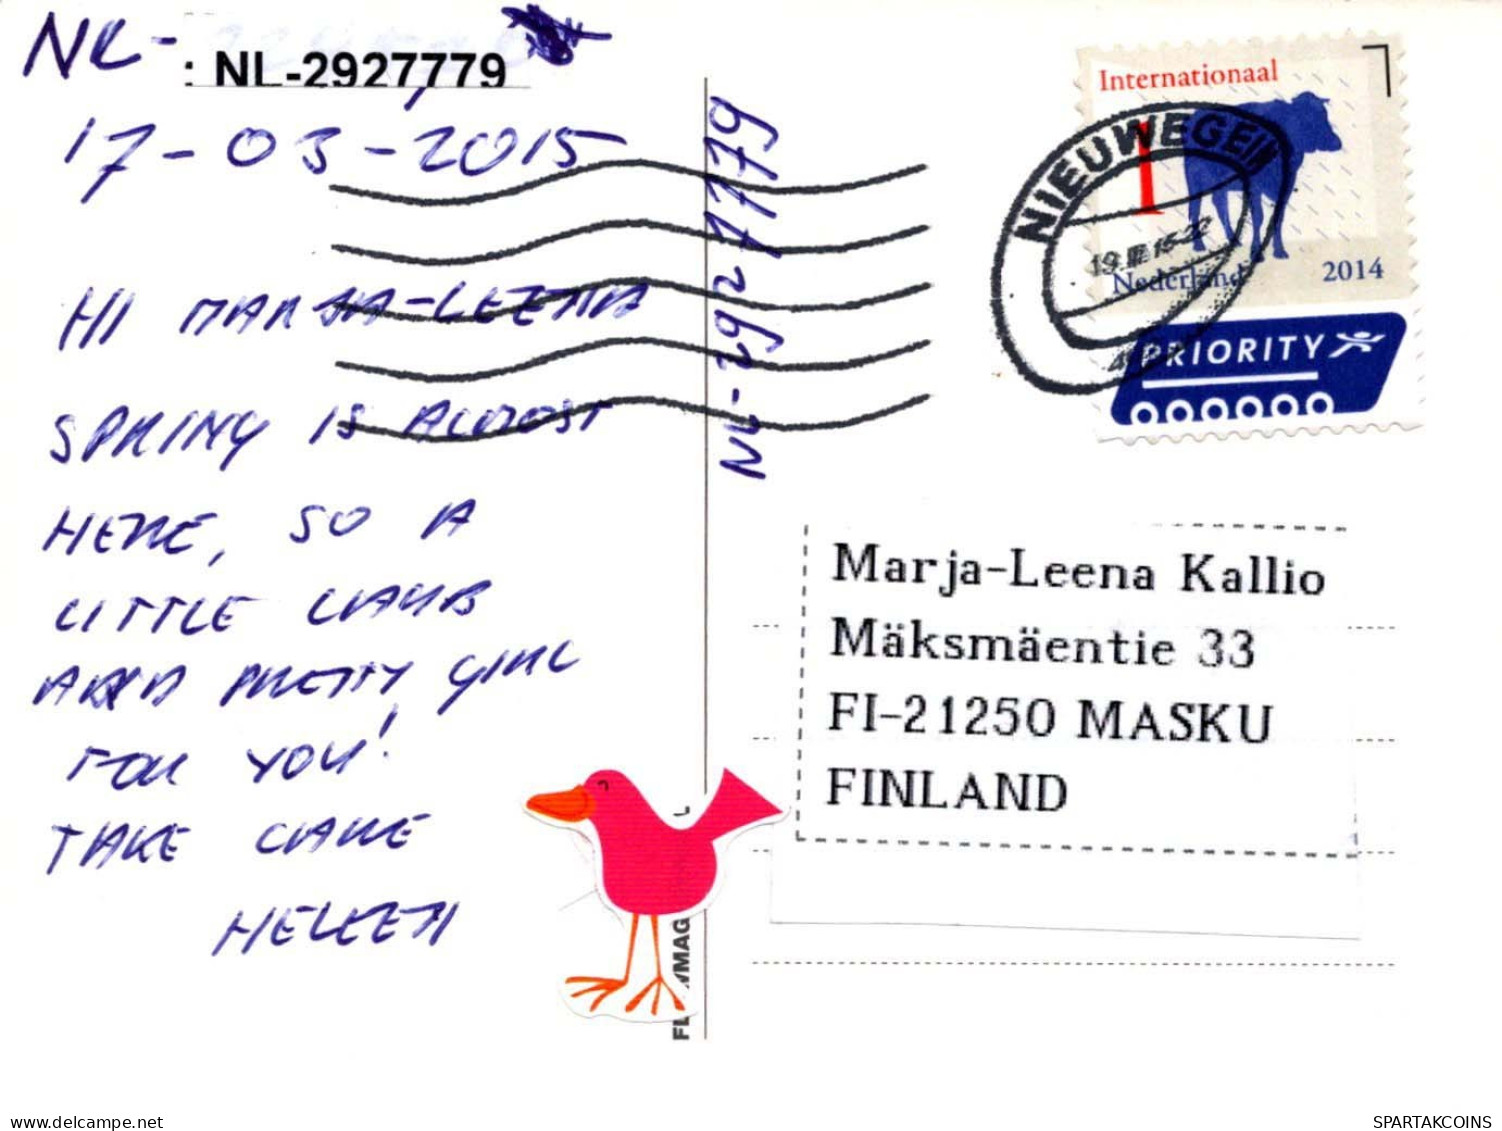 NL-
: NL-2927779
17-03-2015
HI MARJA-LEENA
SPRING IS ALMOST
HERE, SO A
LITTLE LAMB
AND PRETTY GIRL
FOR YOU!
TAKE CARE
HELEEN
NL-2927779
Internationaal
1
Nederland 2014
PRIORITY
NIEUWEGEIN
19.III.15-22
Marja-Leena Kallio
Mäksmäentie 33
FI-21250 MASKU
FINLAND
delcampe.net
SPARTAKCOINS